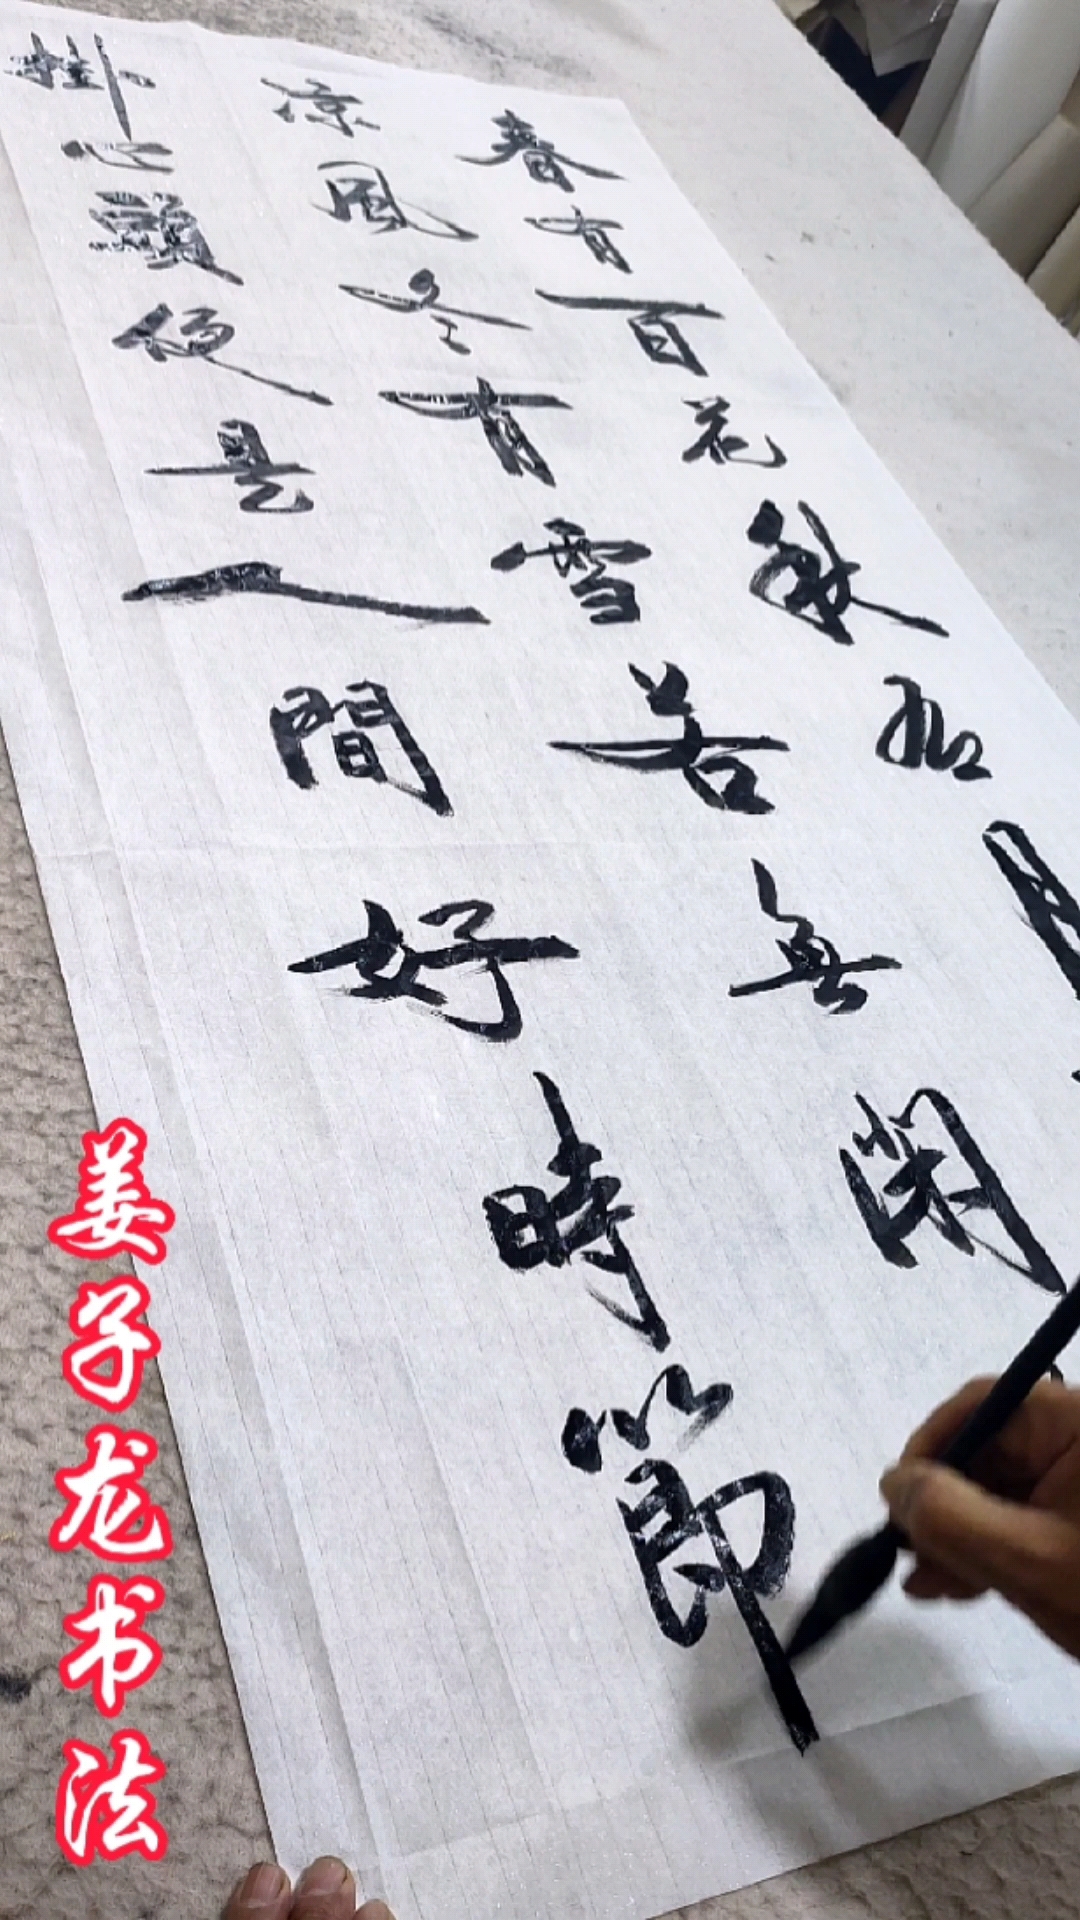 春有百花秋有月
凉風冬有雪若無閑
掛心頭便是人間好時節
姜子龙书法